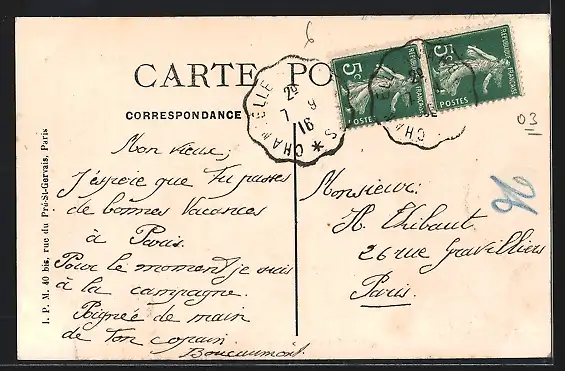 CARTE PO
CORRESPONDANCE
Mon vieux,
J'éspère que Tu passes
de bonnes Vacances
à Paris.
Pour le moment je suis
à la campagne.
Poignée de main
de Ton copain.
Boucaumont.
Monsieur:
H. Thibaut.
26 rue Gravilliers
Paris.
I. P. M. 40 bis, rue du Pré-St-Gervais, Paris
5c
REPUBLIQUE FRANÇAISE
POSTES
5c
REPUBLIQUE FRANÇAISE
POSTES
6
03